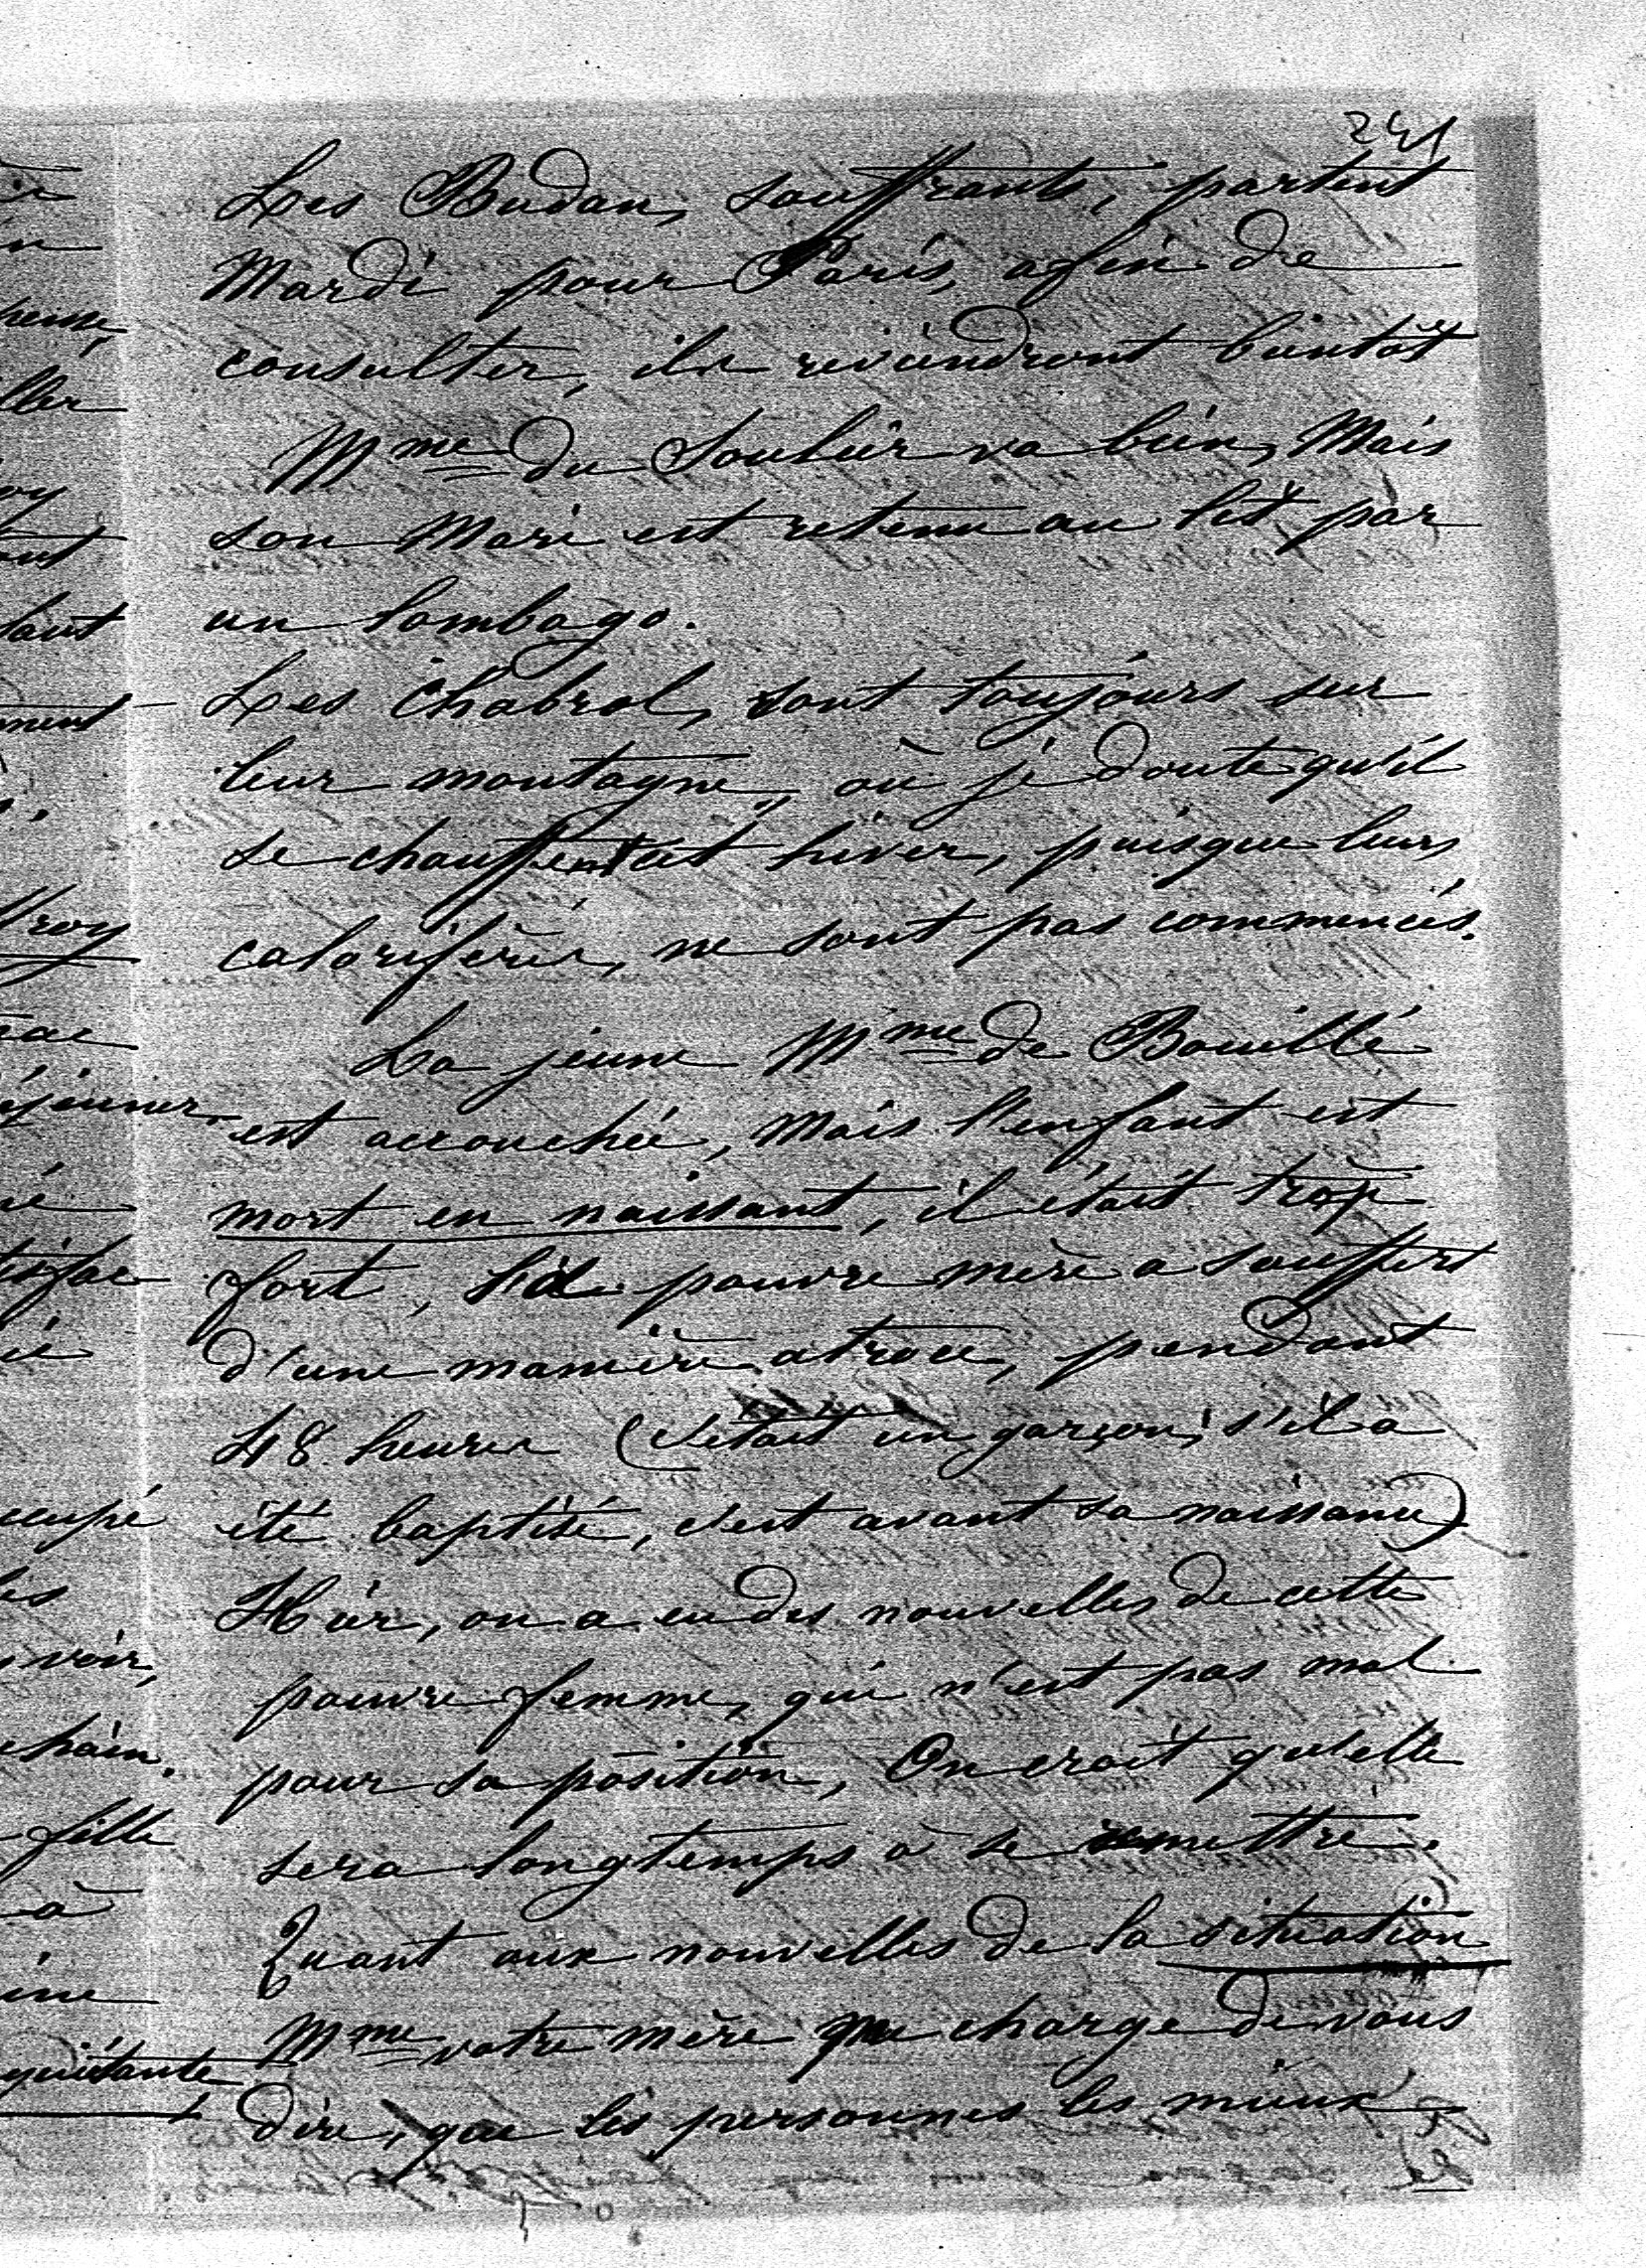 241
Les Budan, souffrants, partent
Mardi pour Paris, afin de
consulter, ils reviendront bientôt
Mme du Soulier va bien, Mais
son Mari est retenu au lit par
un lombago.
Les Chabrol, sont toujours sur
leur montagne, où je doute qu'il
se chauffent cet hiver, puisque leurs
calorifères, ne sont pas commencés.
La jeune Mme de Bouillé
est accouchée, Mais l'enfant est
mort en naissant, il était trop
fort, la pauvre mère a souffert
d'une manière atroce, pendant
48 heures (c'était un garçon, s'il a
été baptisé, c'est avant sa naissance)
Hier, on a eu des nouvelles de cette
pauvre femme, qui n'est pas mal
pour sa position, On croit qu'elle
sera longtemps à se remettre.
Quant aux nouvelles de la situation
Mme votre mère me charge de vous
dire, que les personnes les mieux